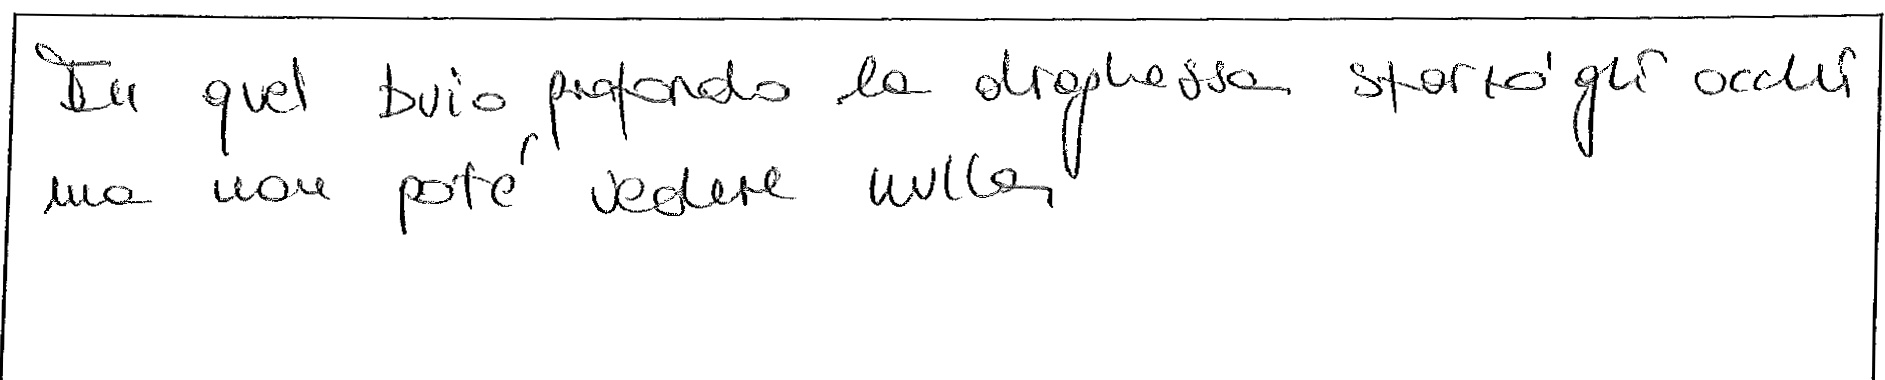 In quel buio profondo la draghessa sforzò gli occhi
ma non poté vedere nulla,